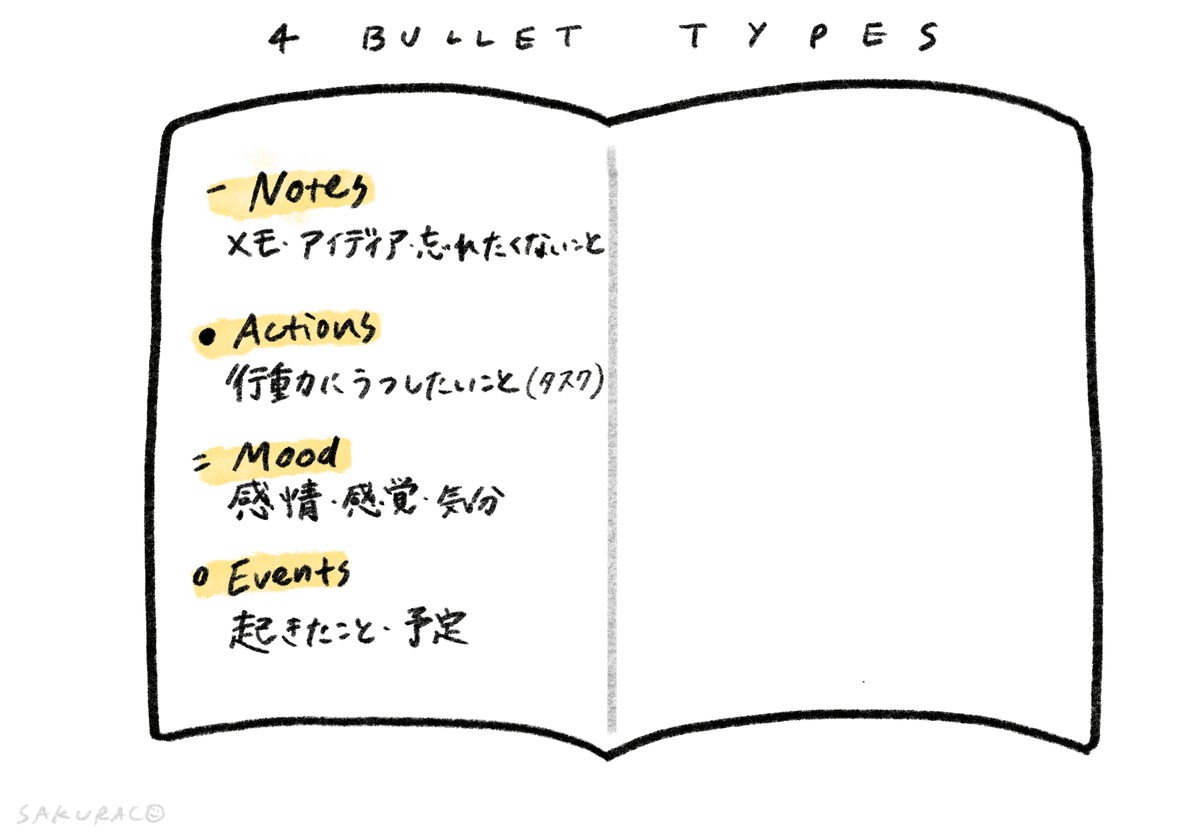 4 BULLET TYPES
- Notes
メモ・アイディア・忘れたくないこと
● Actions
行動にうつしたいこと(タスク)
= Mood
感情・感覚・気分
○ Events
起きたこと・予定
SAKURACO